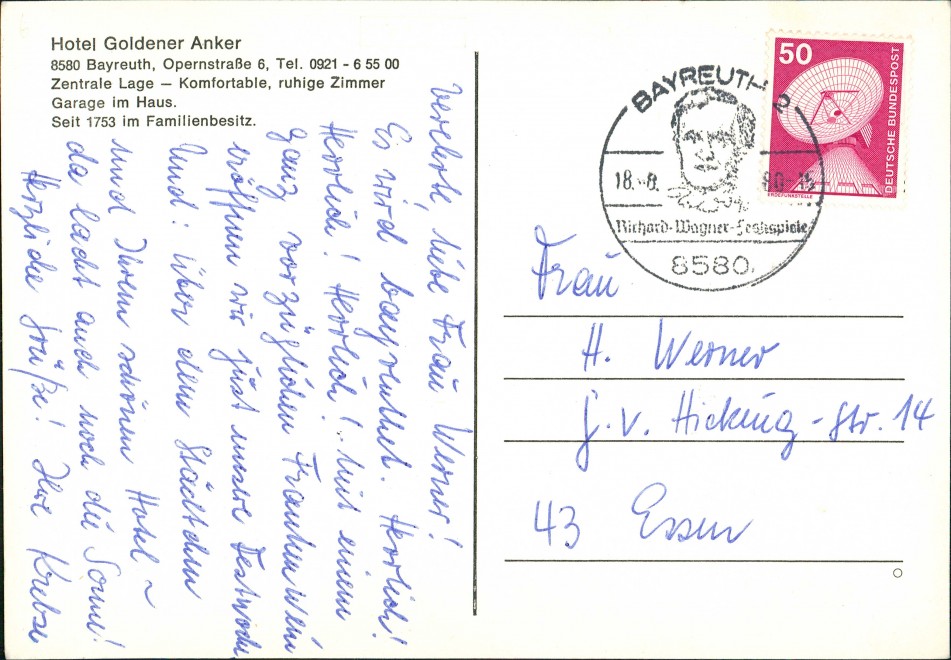 Hotel Goldener Anker
8580 Bayreuth, Opernstraße 6, Tel. 0921 - 6 55 00
Zentrale Lage — Komfortable, ruhige Zimmer
Garage im Haus.
Seit 1753 im Familienbesitz.
Verehrte, liebe Frau Werner!
Es wird bayreuthet. Herrlich!
Herrlich! Herrlich! Mit einem
ganz vorzüglichen Frankenwein
eröffnen wir just unsere Festwoche
Und: über dem Städtchen
und Ihrem schönen Hotel ~
da lacht auch noch die Sonne!
Herzliche Grüße! Ihre Krebse
50
DEUTSCHE BUNDESPOST
ERDEFUNKSTELLE
BAYREUTH 2
18.-8. 80-15
Richard-Wagner-Festspiele
8580
Frau
H. Werner
g. v. Hicking-Str. 14
43 Essen